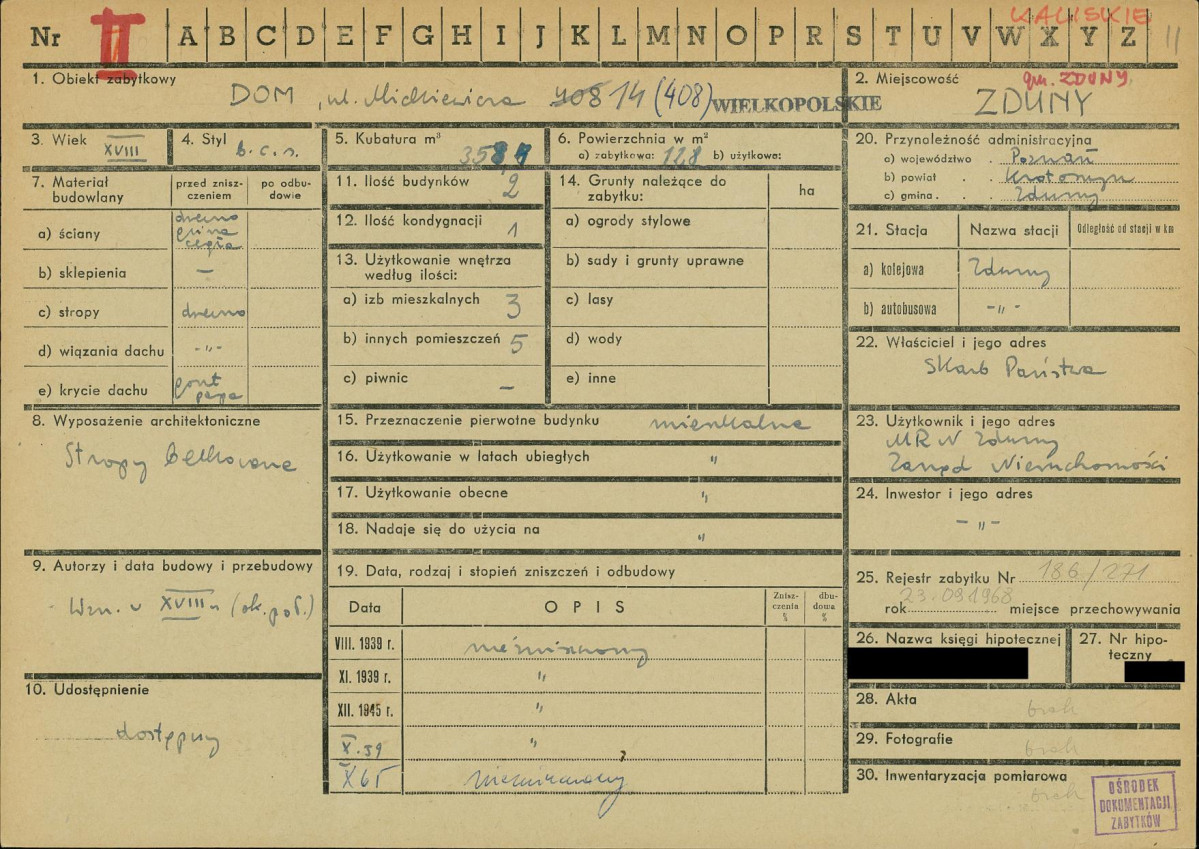 KALISKIE
Nr II A B C D E F G H I J K L M N O P R S T U V W X Y Z 11
1. Obiekt zabytkowy
DOM, ul. Mickiewicza 408 14 (408) WIELKOPOLSKIE
2. Miejscowość
gm. ZDUNY.
ZDUNY
3. Wiek XVIII
4. Styl b.c.s.
5. Kubatura m³
358,4
6. Powierzchnia w m²
a) zabytkowa: 128 b) użytkowa:
7. Materiał budowlany
przed zniszczeniem
po odbudowie
a) ściany
drewno
glina
cegła
b) sklepienia –
c) stropy drewno
d) wiązania dachu -"-
e) krycie dachu
gont
papa
8. Wyposażenie architektoniczne
Stropy belkowane
9. Autorzy i data budowy i przebudowy
Wzn. w XVIII w (ok. poł.)
10. Udostępnienie
dostępny
11. Ilość budynków 2
12. Ilość kondygnacji 1
13. Użytkowanie wnętrza
według ilości:
a) izb mieszkalnych 3
b) innych pomieszczeń 5
c) piwnic –
14. Grunty należące do
zabytku:
ha
a) ogrody stylowe
b) sady i grunty uprawne
c) lasy
d) wody
e) inne
15. Przeznaczenie pierwotne budynku mieszkalne
16. Użytkowanie w latach ubiegłych "
17. Użytkowanie obecne "
18. Nadaje się do użycia na "
19. Data, rodzaj i stopień zniszczeń i odbudowy
Data
OPIS
Zniszczenia %
dbudowa %
VIII. 1939 r. niezniszczony
XI. 1939 r. "
XII. 1945 r. "
X.59 "
X 65 niezniszczony
20. Przynoleżność administracyjna
a) województwo . Poznań
b) powiat . . Krotoszyn
c) gmina . . . Zduny
21. Stacja
Nazwa stacji
Odległość od stacji w km
a) kolejowa Zduny
b) autobusowa -"-
22. Właściciel i jego adres
Skarb Państwa
23. Użytkownik i jego adres
MRN Zduny
Zarząd Nieruchomości
24. Inwestor i jego adres
-"-
25. Rejestr zabytku Nr 186/271
23.09.1968
rok miejsce przechowywania
26. Nazwa księgi hipotecznej
27. Nr hipoteczny
28. Akta brak
29. Fotografie brak
30. Inwentaryzacja pomiarowa
brak
OŚRODEK
DOKUMENTACJI
ZABYTKÓW